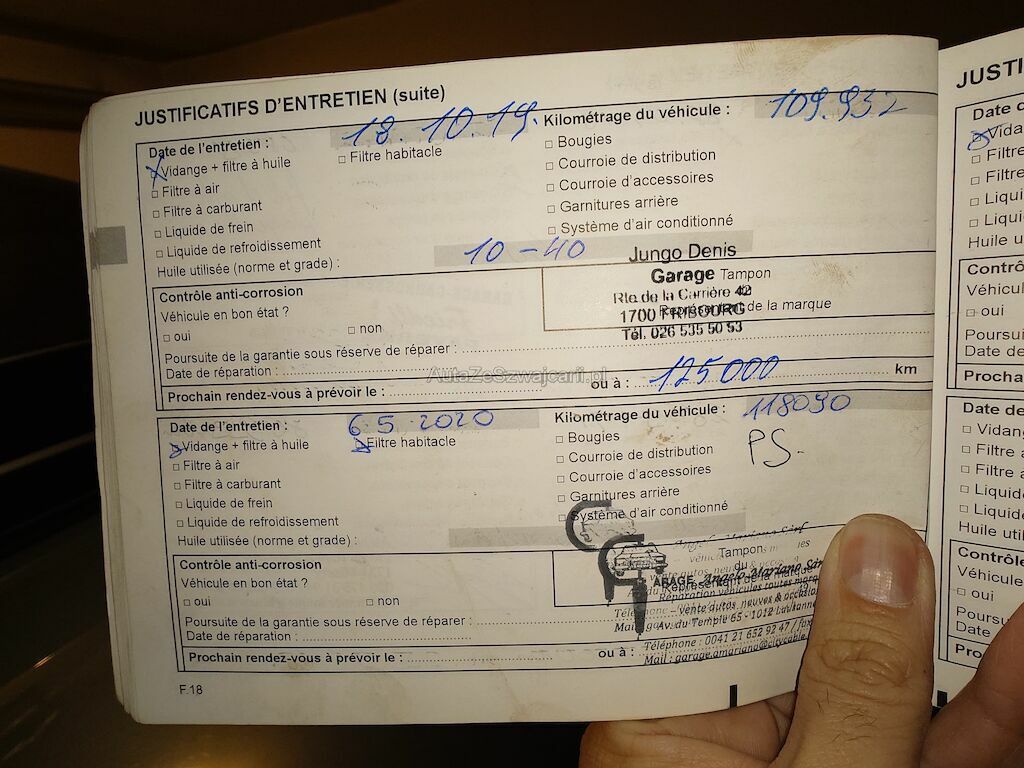 JUSTIFICATIFS D'ENTRETIEN (suite)
Date de l'entretien : 18.10.19. Kilométrage du véhicule : 109.932
Vidange + filtre à huile
Filtre habitacle
Filtre à air
Filtre à carburant
Liquide de frein
Liquide de refroidissement
Huile utilisée (norme et grade) : 10-40
Bougies
Courroie de distribution
Courroie d'accessoires
Garnitures arrière
Système d'air conditionné
Jungo Denis
Garage
Rte de la Carrière 42
1700 FRIBOURG
Tél. 026 535 50 53
Tampon
Représentant de la marque
Contrôle anti-corrosion
Véhicule en bon état ?
oui
non
Poursuite de la garantie sous réserve de réparer :
Date de réparation :
AutaZeSzwajcarii.pl
Prochain rendez-vous à prévoir le : ou à : 125000 km
Date de l'entretien : 6.5.2020 Kilométrage du véhicule : 118090
Vidange + filtre à huile
Filtre habitacle
Filtre à air
Filtre à carburant
Liquide de frein
Liquide de refroidissement
Huile utilisée (norme et grade) :
Bougies
Courroie de distribution
Courroie d'accessoires
Garnitures arrière
Système d'air conditionné
PS.
Tampon
du
Représentant de la
GARAGE Angelo Mariano
Réparation véhicules toutes
vente autos neuves &
Av. du Temple 65 - 1012 Lausanne
Téléphone : 0041 21 652 92 47 / fax
Mail : garage.amariano@citycable
Contrôle anti-corrosion
Véhicule en bon état ?
oui
non
Poursuite de la garantie sous réserve de réparer :
Date de réparation :
Prochain rendez-vous à prévoir le : ou à :
F.18
JUSTI
Date d
Vida
Filtre
Filtre
Liqui
Liqui
Huile u
Contrô
Véhicul
oui
Poursui
Date de
Procha
Date de
Vidan
Filtre
Filtre a
Liquid
Liquid
Huile ut
Contrôle
Véhicule
oui
Poursu
Date
Pro